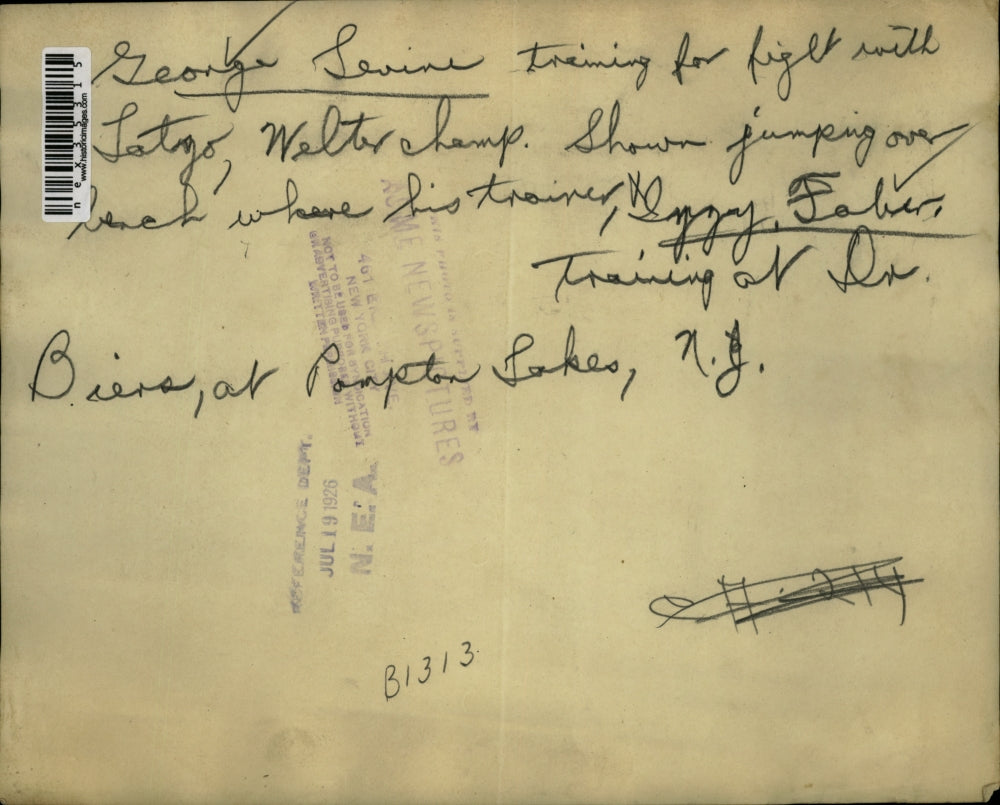 George Levine training for fight with
Latzo, Welter champ. Shown jumping over
bench where his trainer, Izzy Faber,
training at Dr.
Biers, at Pompton Lakes, N.J.
nex35315
www.historicimages.com
ACME NEWSPICTURES
461 E
NEW YORK CITY
NOT TO BE USED FOR SYNDICATION
N. E. A.
REFERENCE DEPT.
JUL 19 1926
B1313